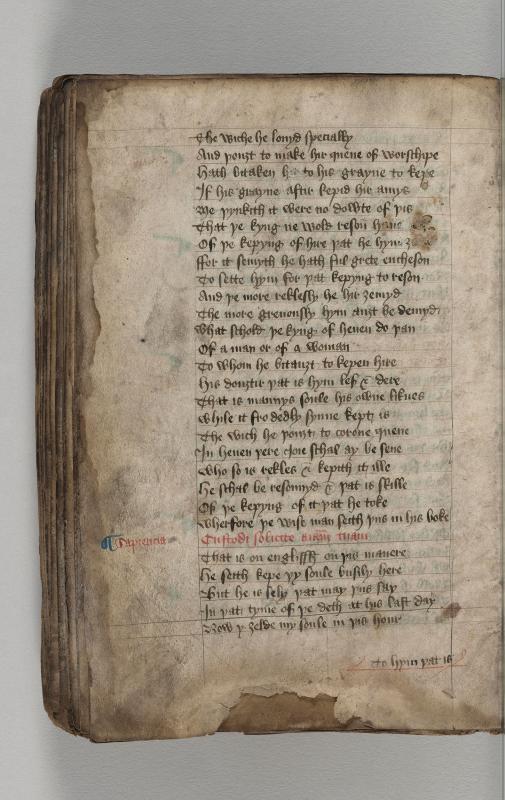 The wiche he louyd specially
And þouȝt to make hir quene of worschipe
Hath bitaken hir to his grayne to kepe
If his grayne aftir kepid hir amys
Me þynkith it were no dowte of þis
That þe kyng ne wold reson haue
Of þe kepyng of hire þat he hym
ffor it semyth he hath ful grete encheson
To sette hym for þat kepyng to reson
And þe more reklesly he hir ȝemyd
The more greuously hym auȝt be demyd
What schold þe kyng of heuen do þan
Of a man or of a woman
To whom he bitauȝt to kepen hire
His douȝtir þat is hym lef & dere
That is mannys soule his owne liknes
While it fro dedly synne kept is
The wich he þouȝt to corone quene
In heuen þere ioie schal ay be sene
Who so is rekles & kepith it ille
He schal be resonnyd & þat is skille
Of þe kepyng of it þat he toke
Wherfore þe wise man seith þus in his boke
Sapiencia Custodi solicite aīam tuam
That is on englissh on þis manere
He seith kepe þy soule busily here
But he is sely þat may þus say
In þat tyme of þe deth at his last day
Now y ȝelde my soule in þis hour
to hym þat is